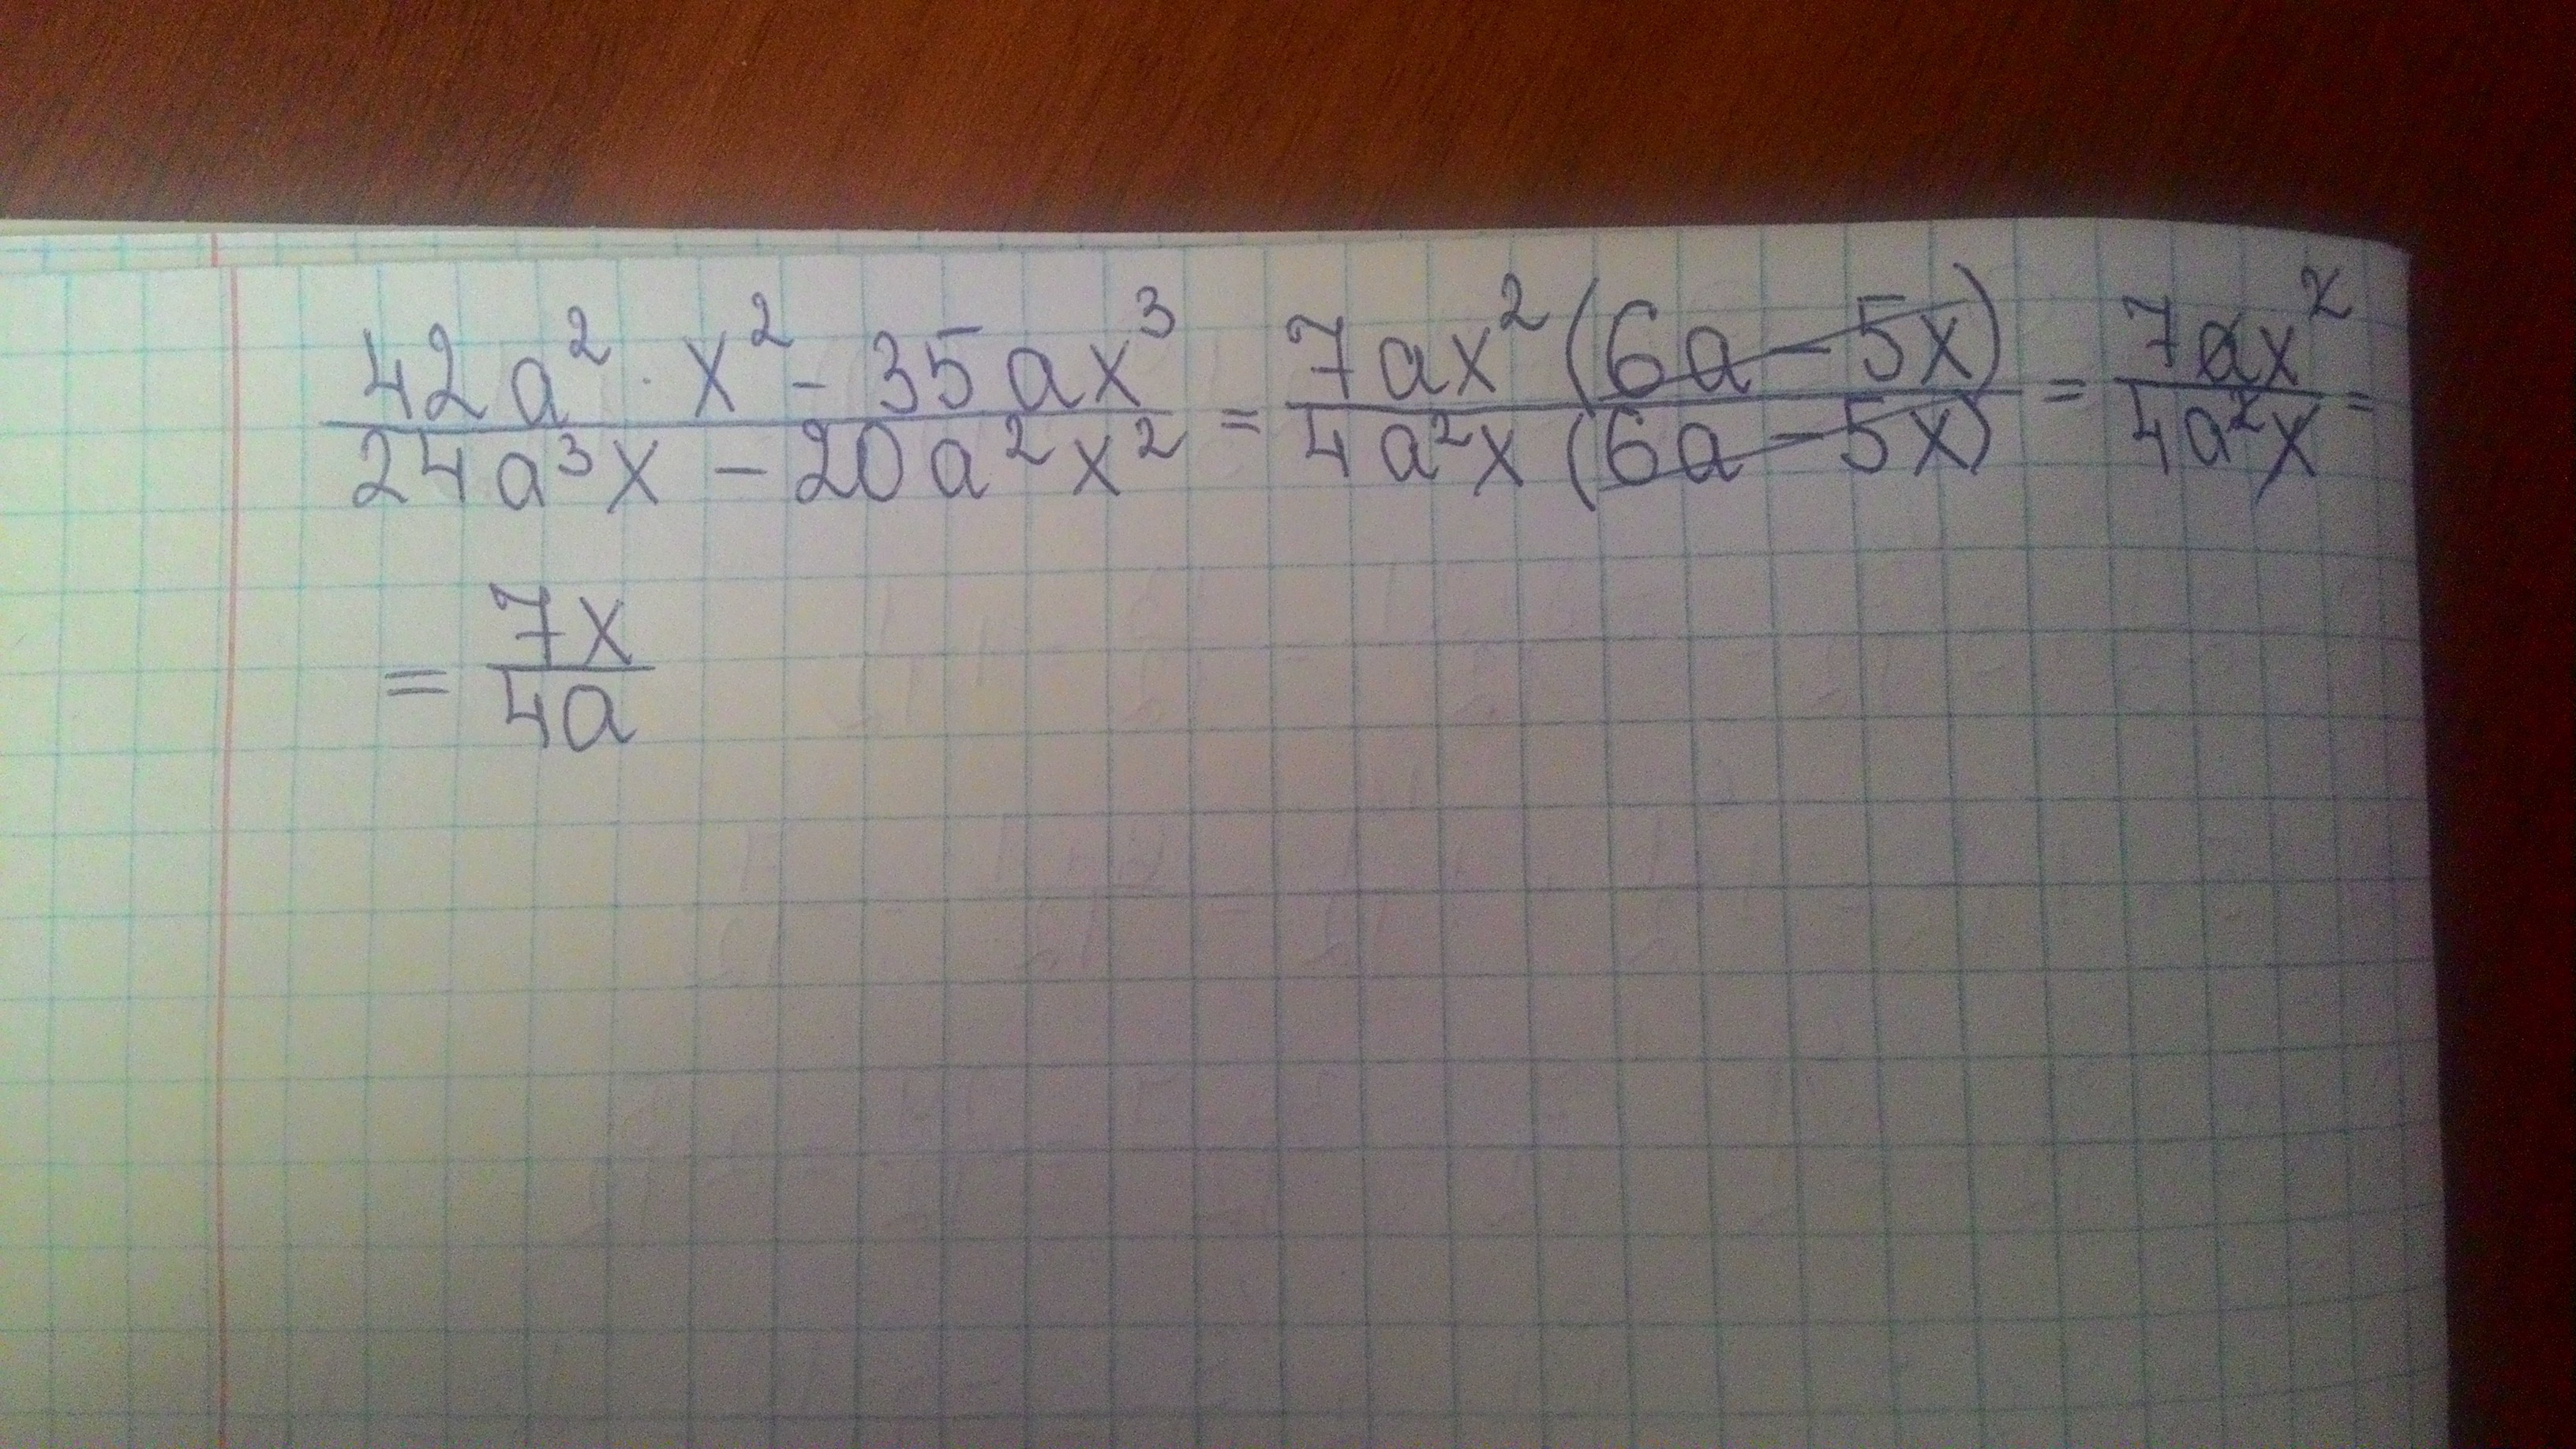 (42a² · x² - 35ax³)/(24a³x - 20a²x²) = (7ax²(6a - 5x))/(4a²x(6a - 5x)) = (7ax²)/(4a²x) =
= (7x)/(4a)